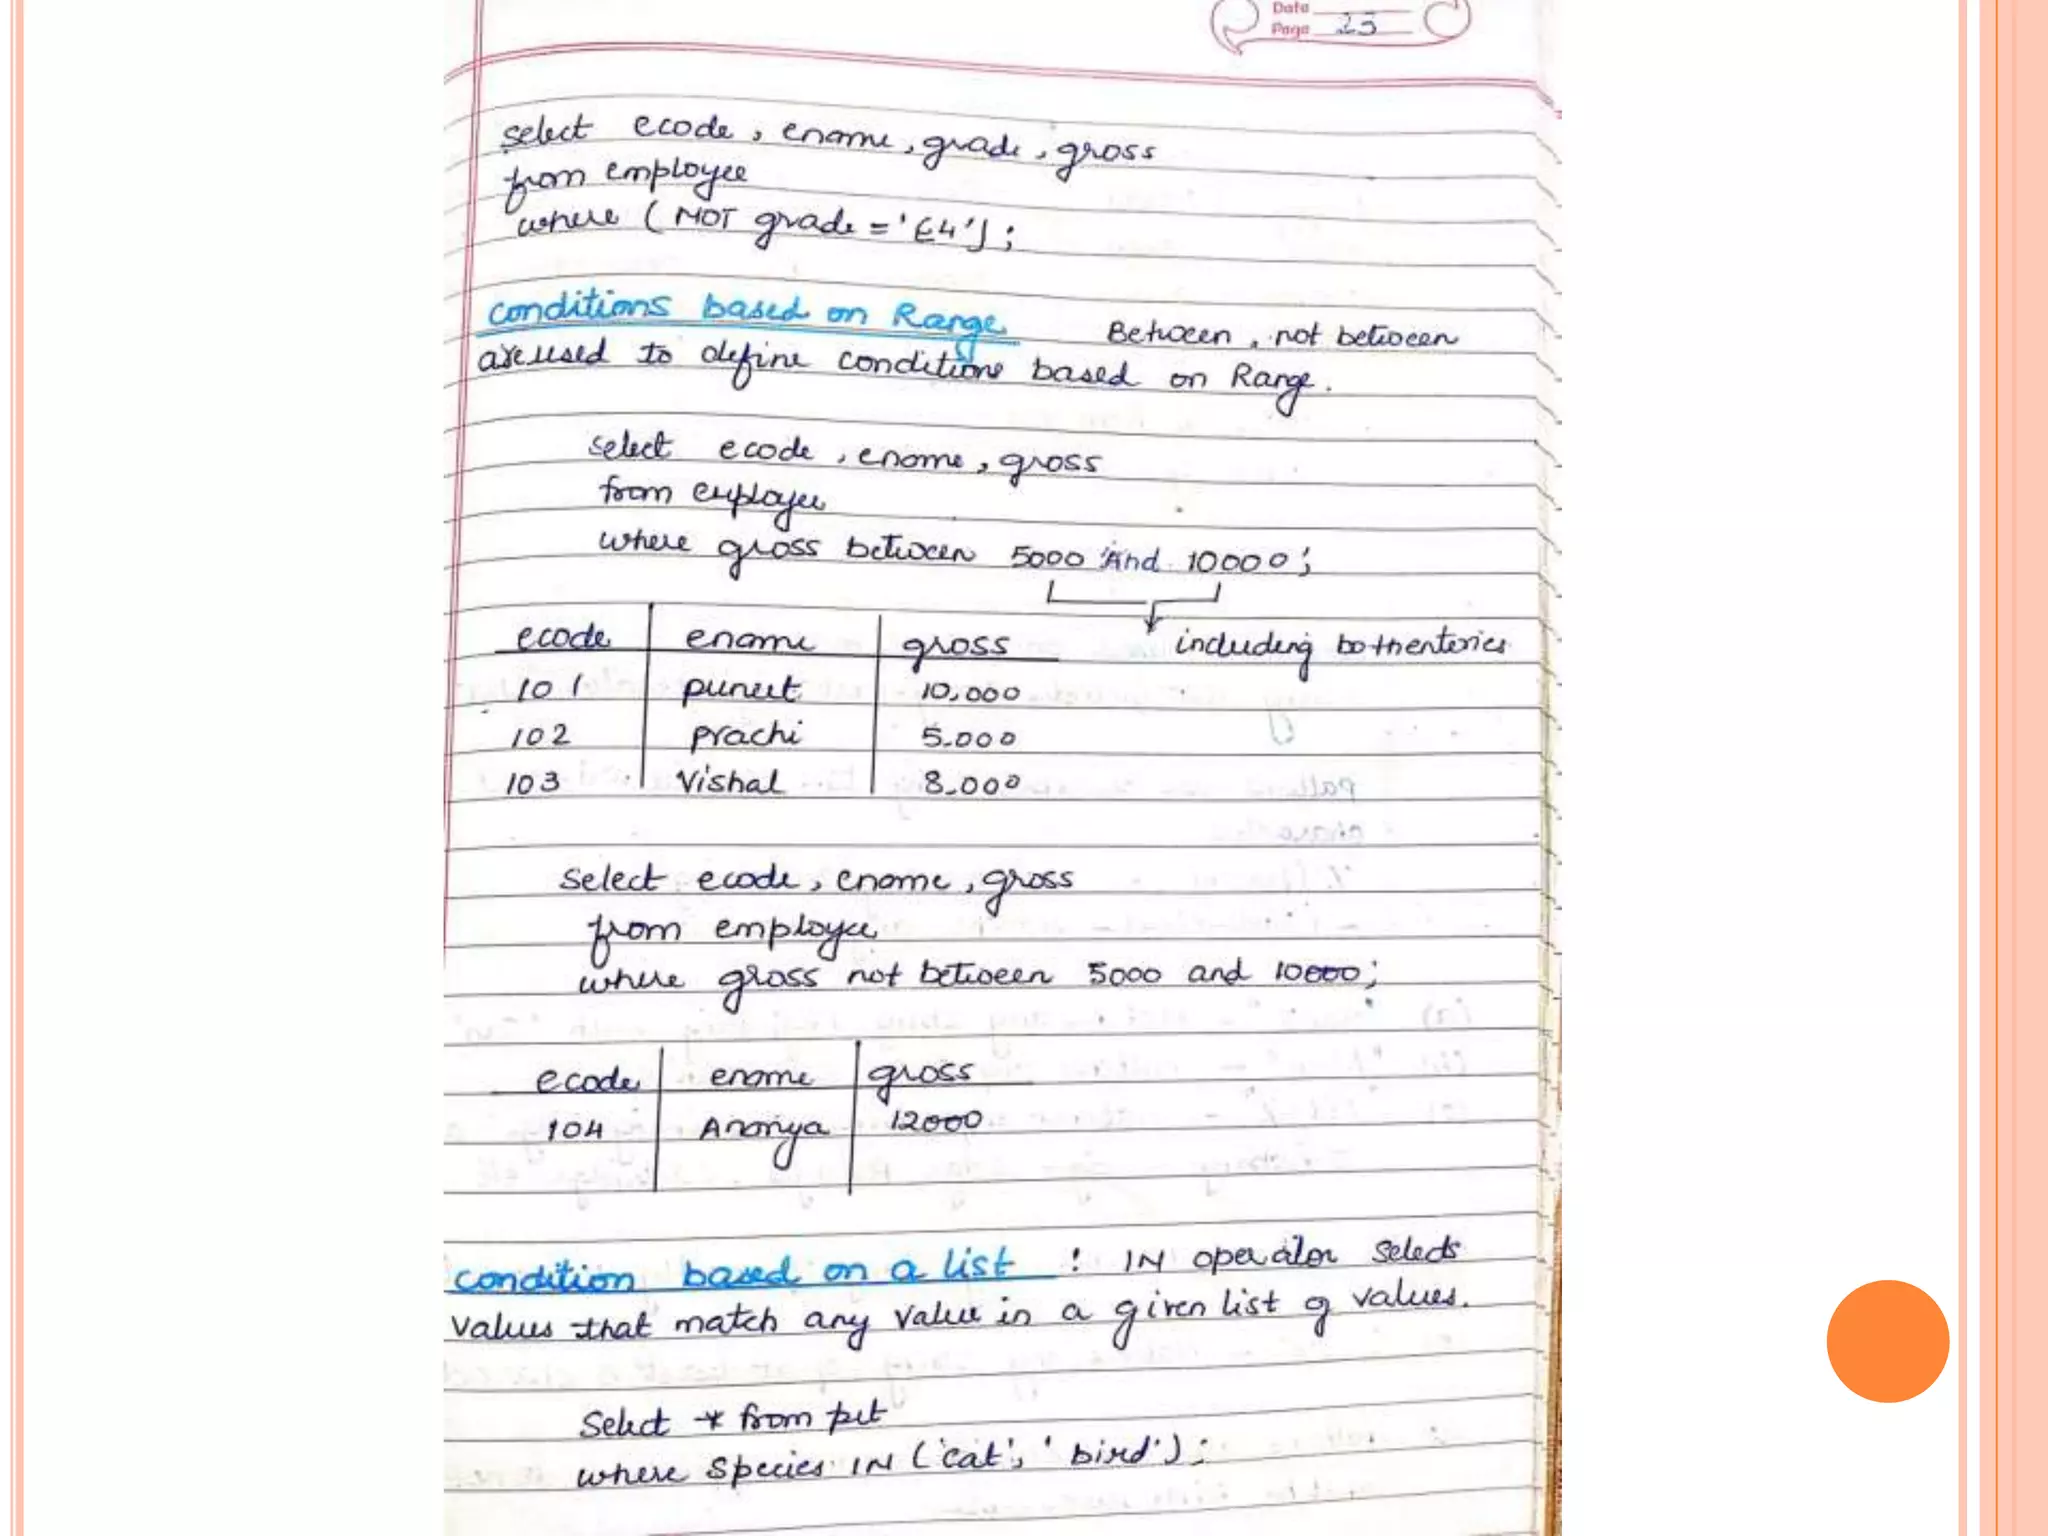 Date
Page 23
select ecode, ename, grade, gross
from employee
where (NOT grade = 'E4');
conditions based on Range Between, not between
are used to define conditions based on Range.
select ecode, ename, gross
from employee
where gross between 5000 And 10000;
ecode ename gross including both enteries
101 puneet 10,000
102 prachi 5,000
103 Vishal 8,000
Select ecode, ename, gross
from employee
where gross not between 5000 and 10000;
ecode ename gross
104 Ananya 12000
condition based on a list : IN operator selects
values that match any value in a given list of values.
Select * from pet
where species IN ('cat', 'bird');